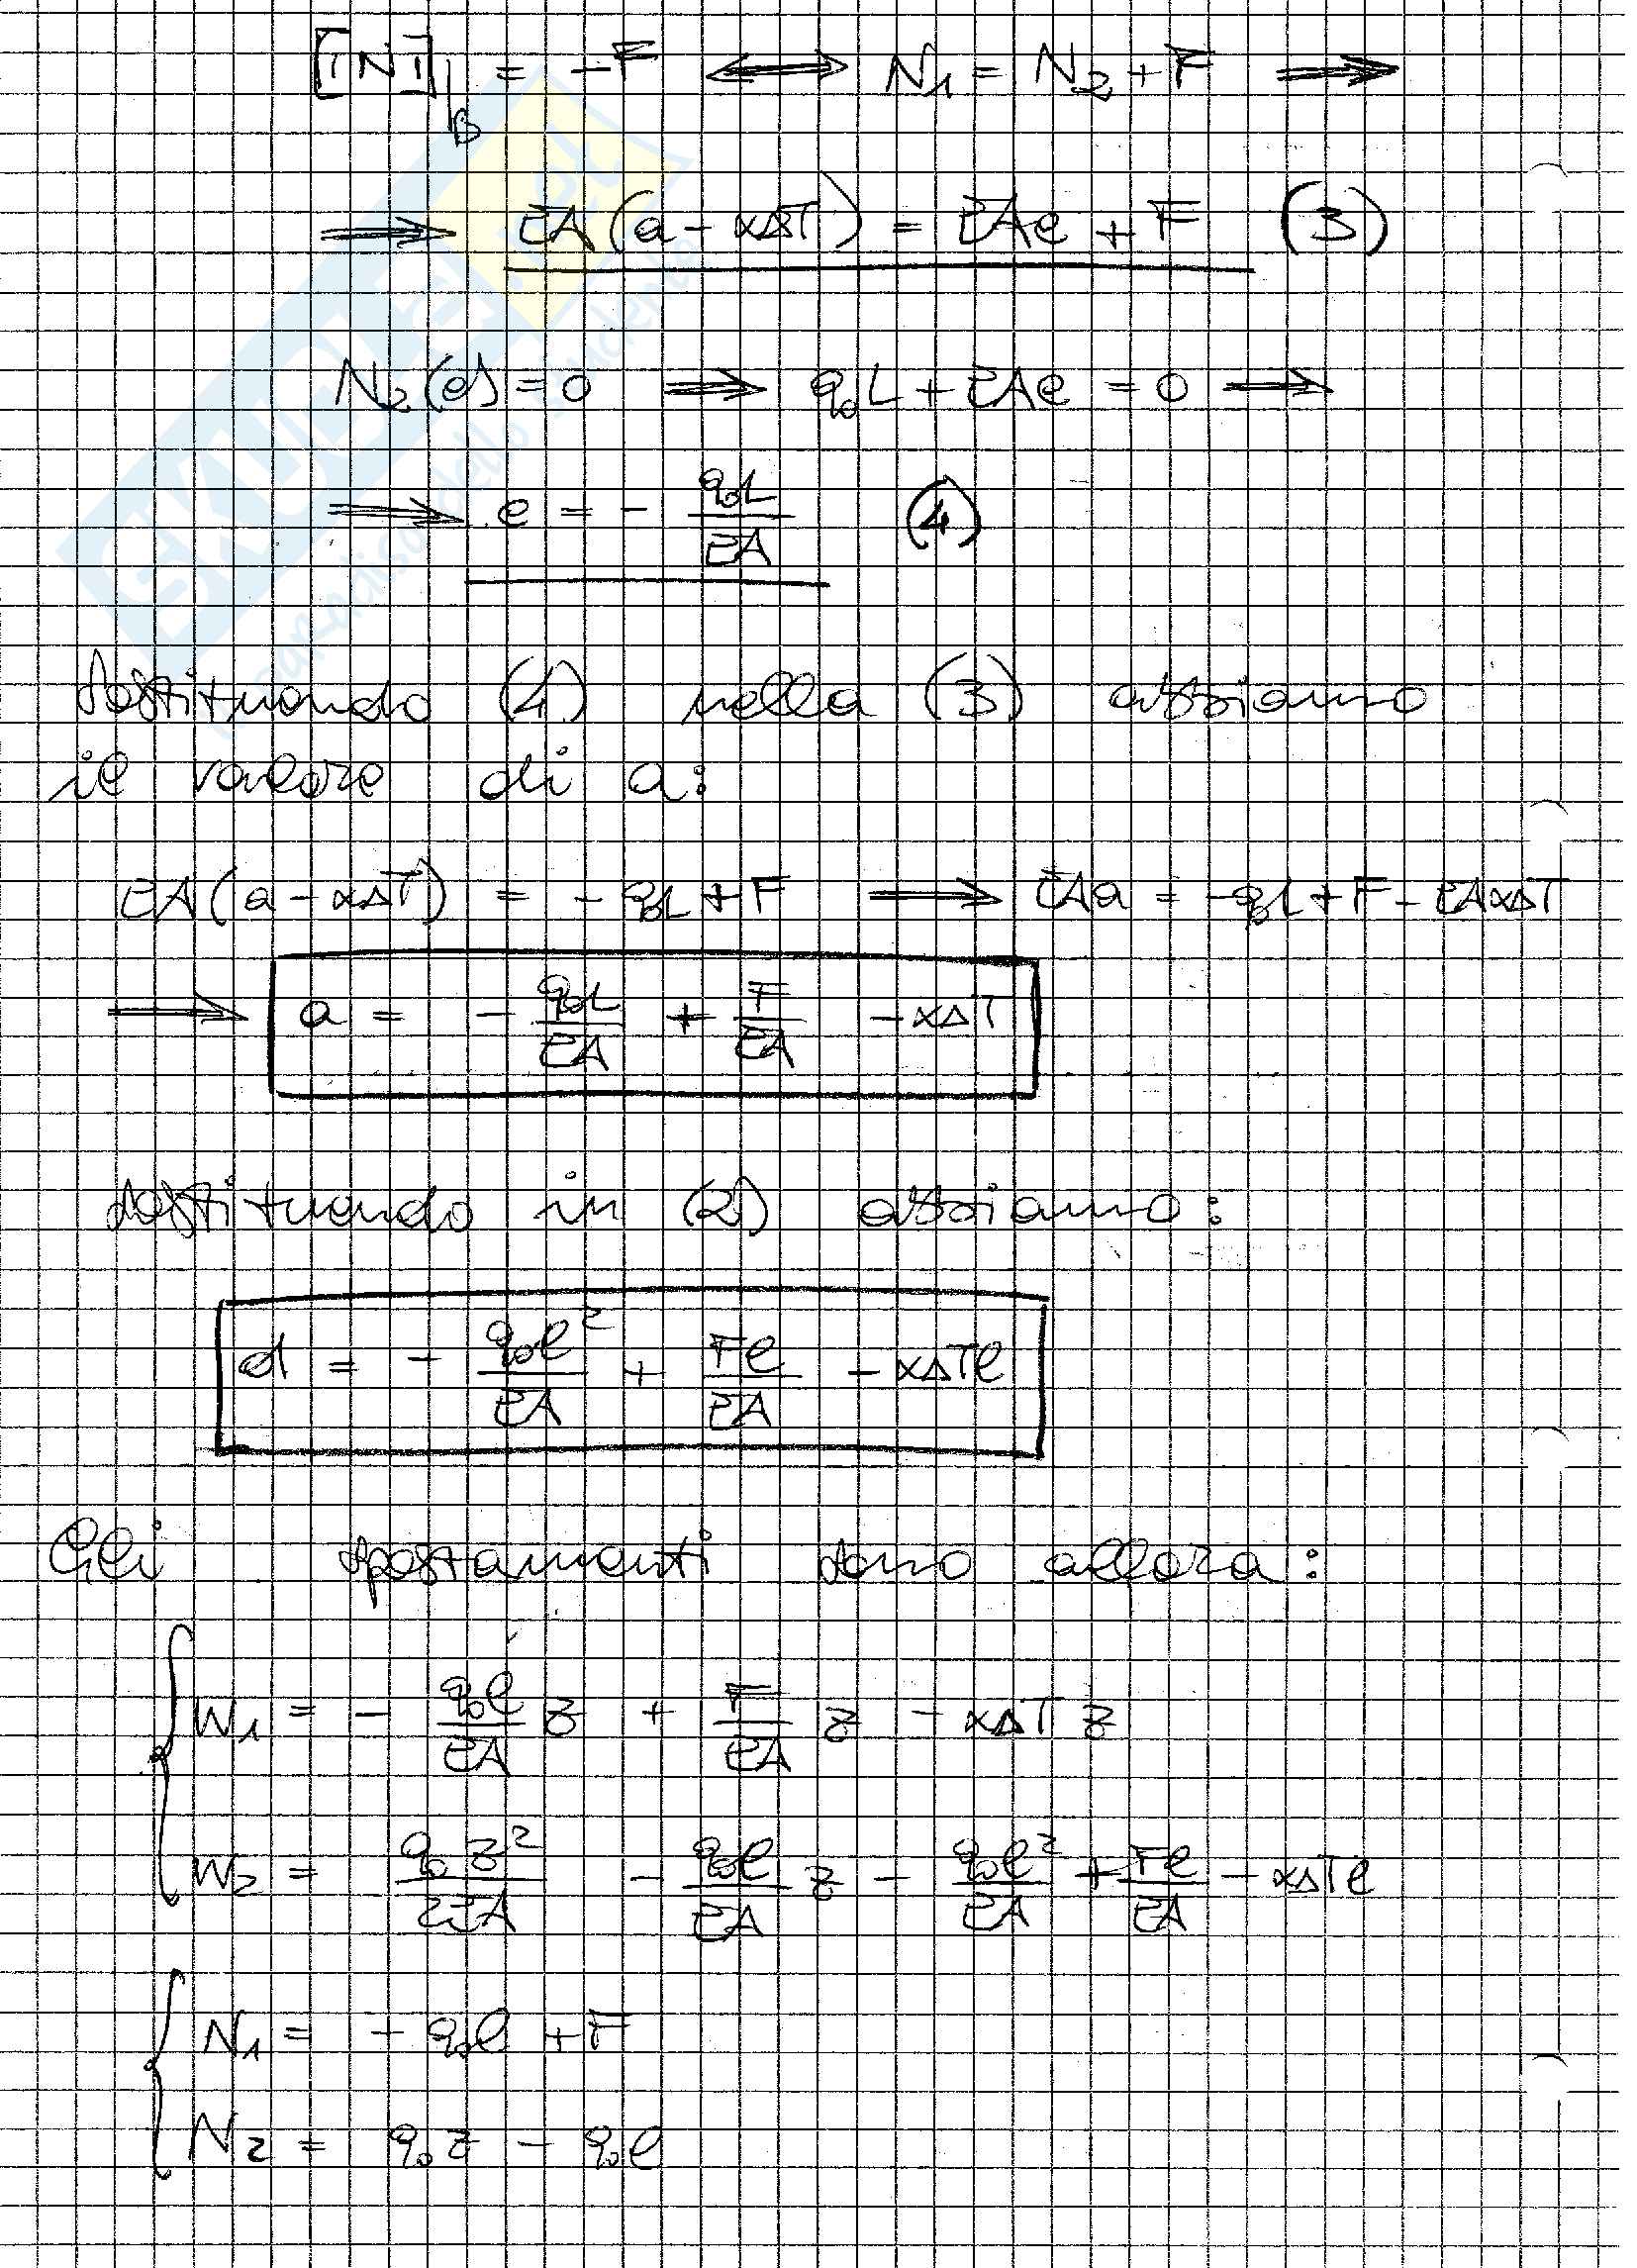 [[N]]|_B = -F ⟺ N₁ = N₂ + F ⟹
⟹ EA(a - αΔT) = EAe + F (3)
N₂(e) = 0 ⟹ q₀L + EAe = 0 ⟹
⟹ e = - q₀L/EA (4)
Sostituendo (4) nella (3) abbiamo
il valore di a:
EA(a - αΔT) = - q₀L + F ⟹ EAa = -q₀L + F - EAαΔT
⟹ a = - q₀L/EA + F/EA - αΔT
Sostituendo in (2) abbiamo:
d = - q₀l²/EA + Fl/EA - αΔTl
Gli spostamenti sono allora:
W₁ = - q₀l/EA z + F/EA z - αΔT z
W₂ = q₀z²/2EA - q₀l/EA z - q₀l²/EA + Fl/EA - αΔTl
N₁ = - q₀l + F
N₂ = q₀z - q₀l
SKUOLA.net
il paradiso dello studente